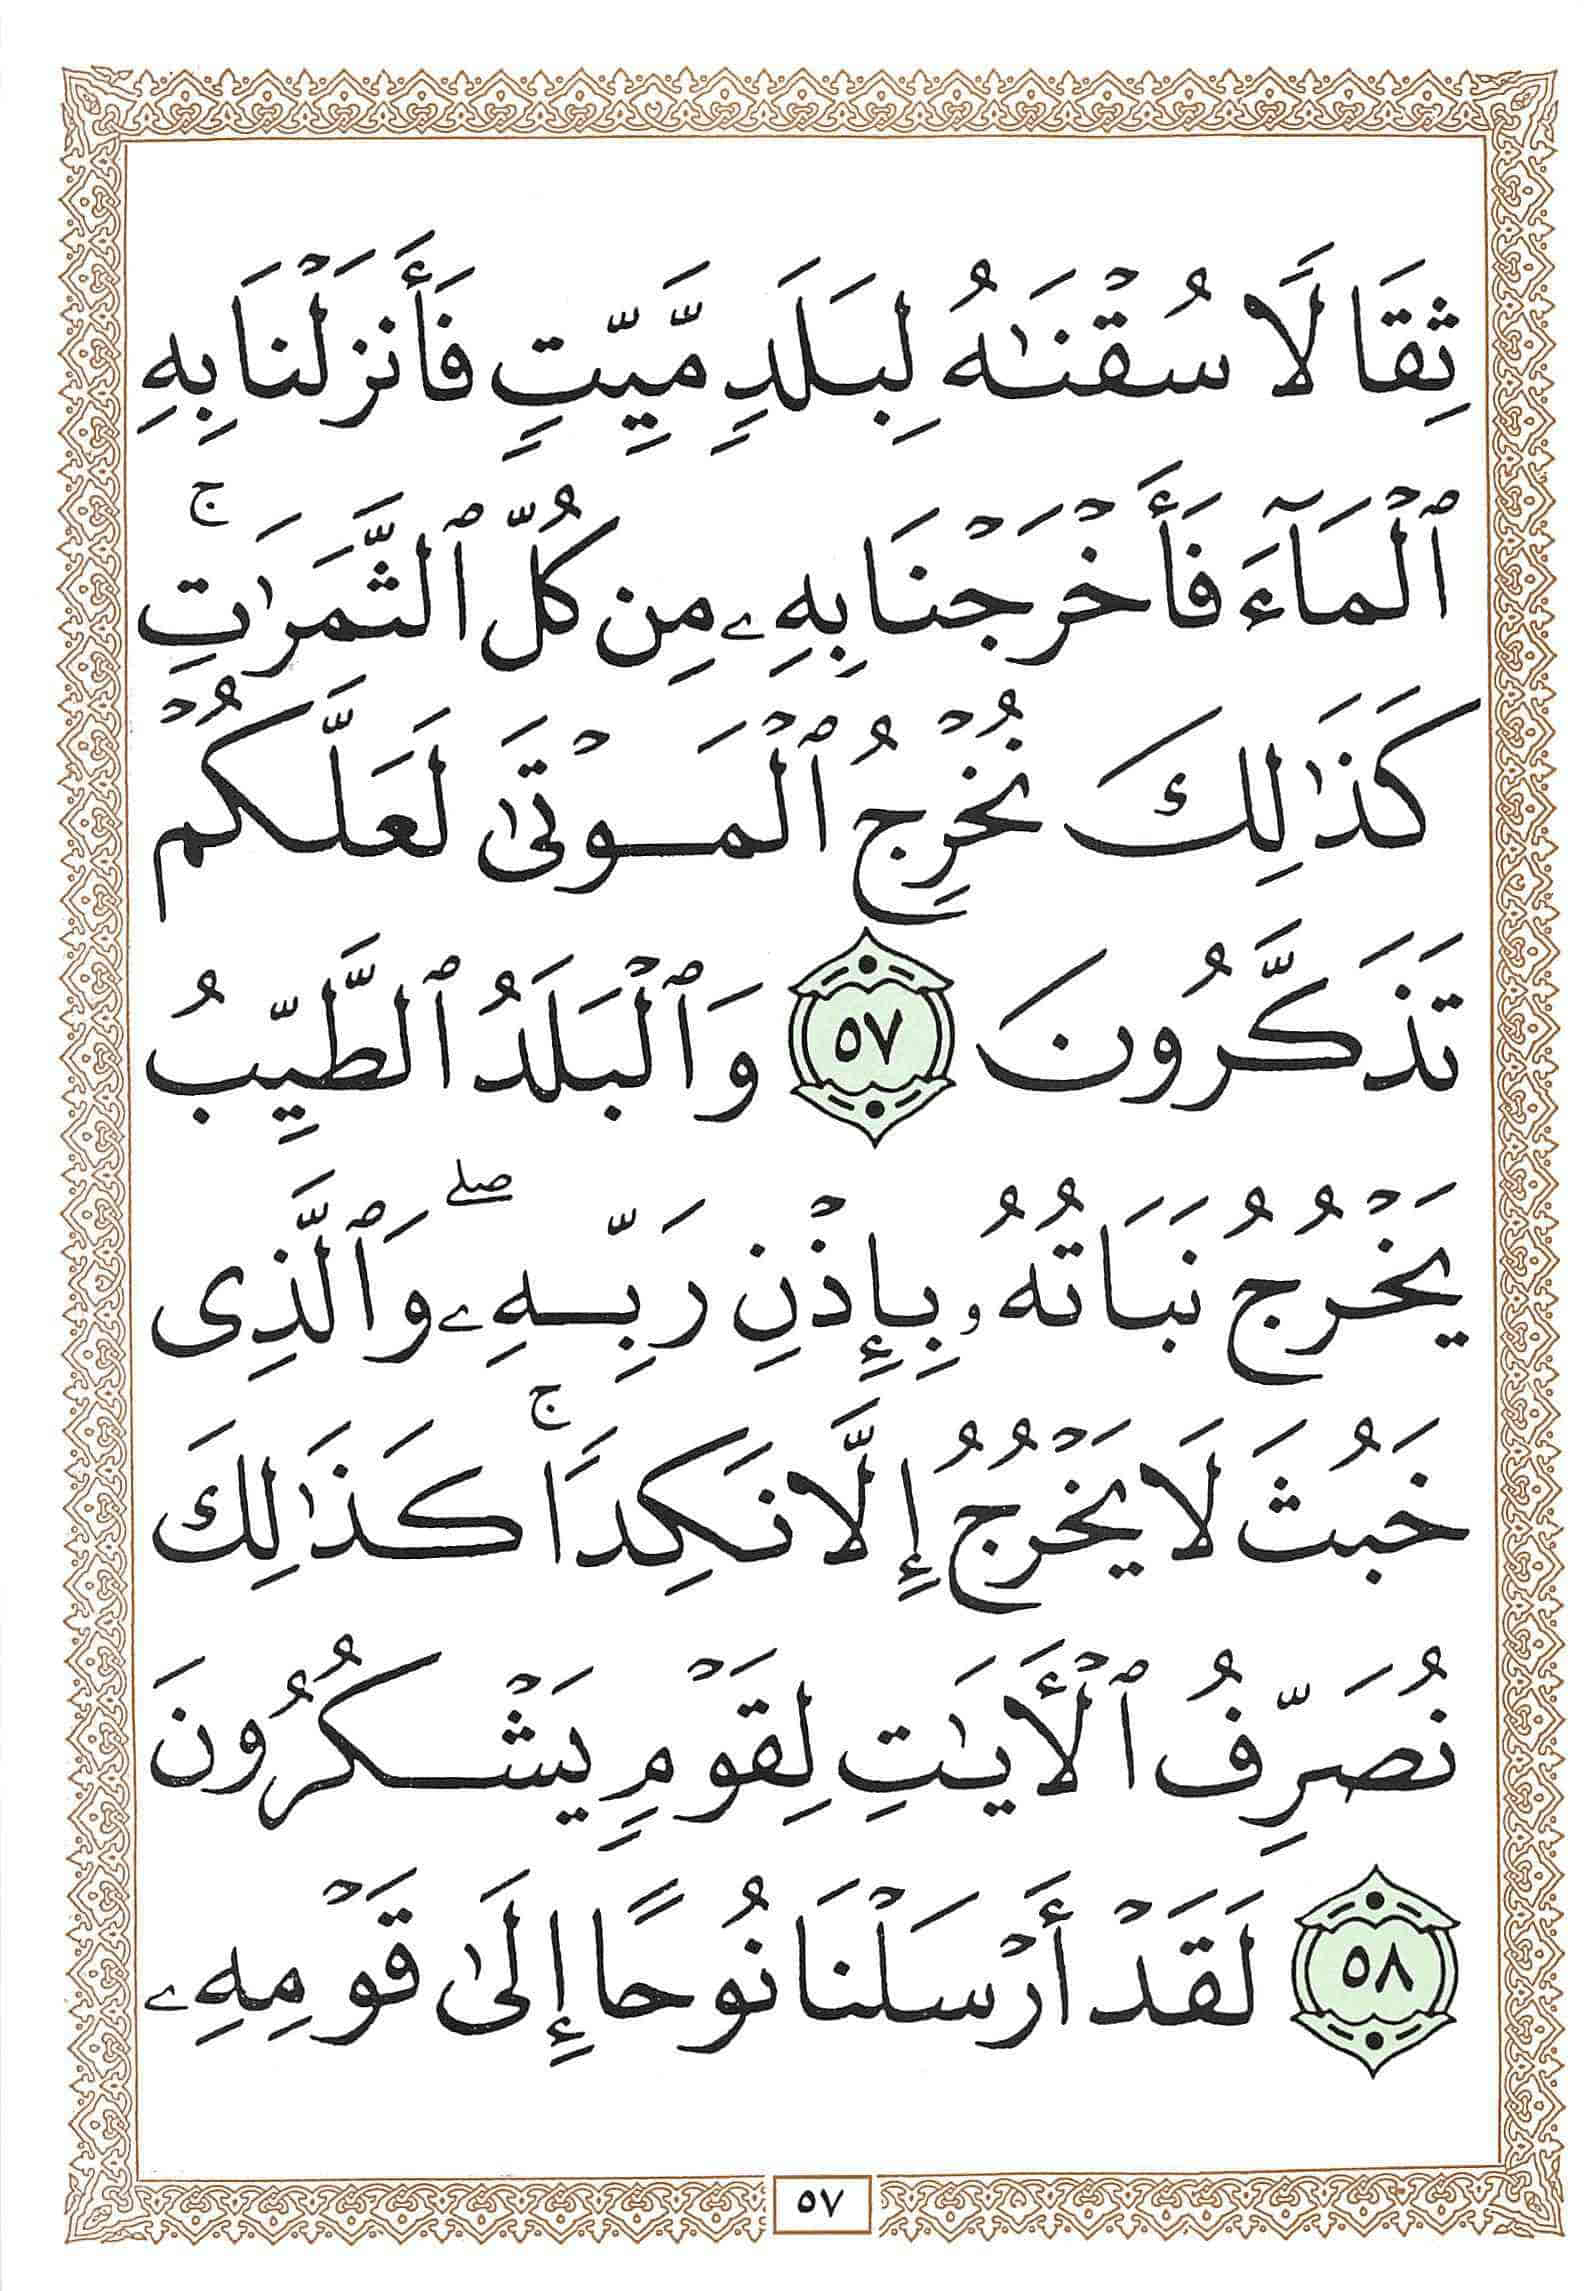 ثِقَالًا سُقْنَـٰهُ لِبَلَدٍ مَّيِّتٍ فَأَنزَلْنَا بِهِ
ٱلْمَآءَ فَأَخْرَجْنَا بِهِۦ مِن كُلِّ ٱلثَّمَرَٰتِ ۚ
كَذَٰلِكَ نُخْرِجُ ٱلْمَوْتَىٰ لَعَلَّكُمْ
تَذَكَّرُونَ ٥٧ وَٱلْبَلَدُ ٱلطَّيِّبُ
يَخْرُجُ نَبَاتُهُۥ بِإِذْنِ رَبِّهِۦ ۖ وَٱلَّذِى
خَبُثَ لَا يَخْرُجُ إِلَّا نَكِدًا ۚ كَذَٰلِكَ
نُصَرِّفُ ٱلْأَيَـٰتِ لِقَوْمٍ يَشْكُرُونَ
٥٨ لَقَدْ أَرْسَلْنَا نُوحًا إِلَىٰ قَوْمِهِۦ
٥٧